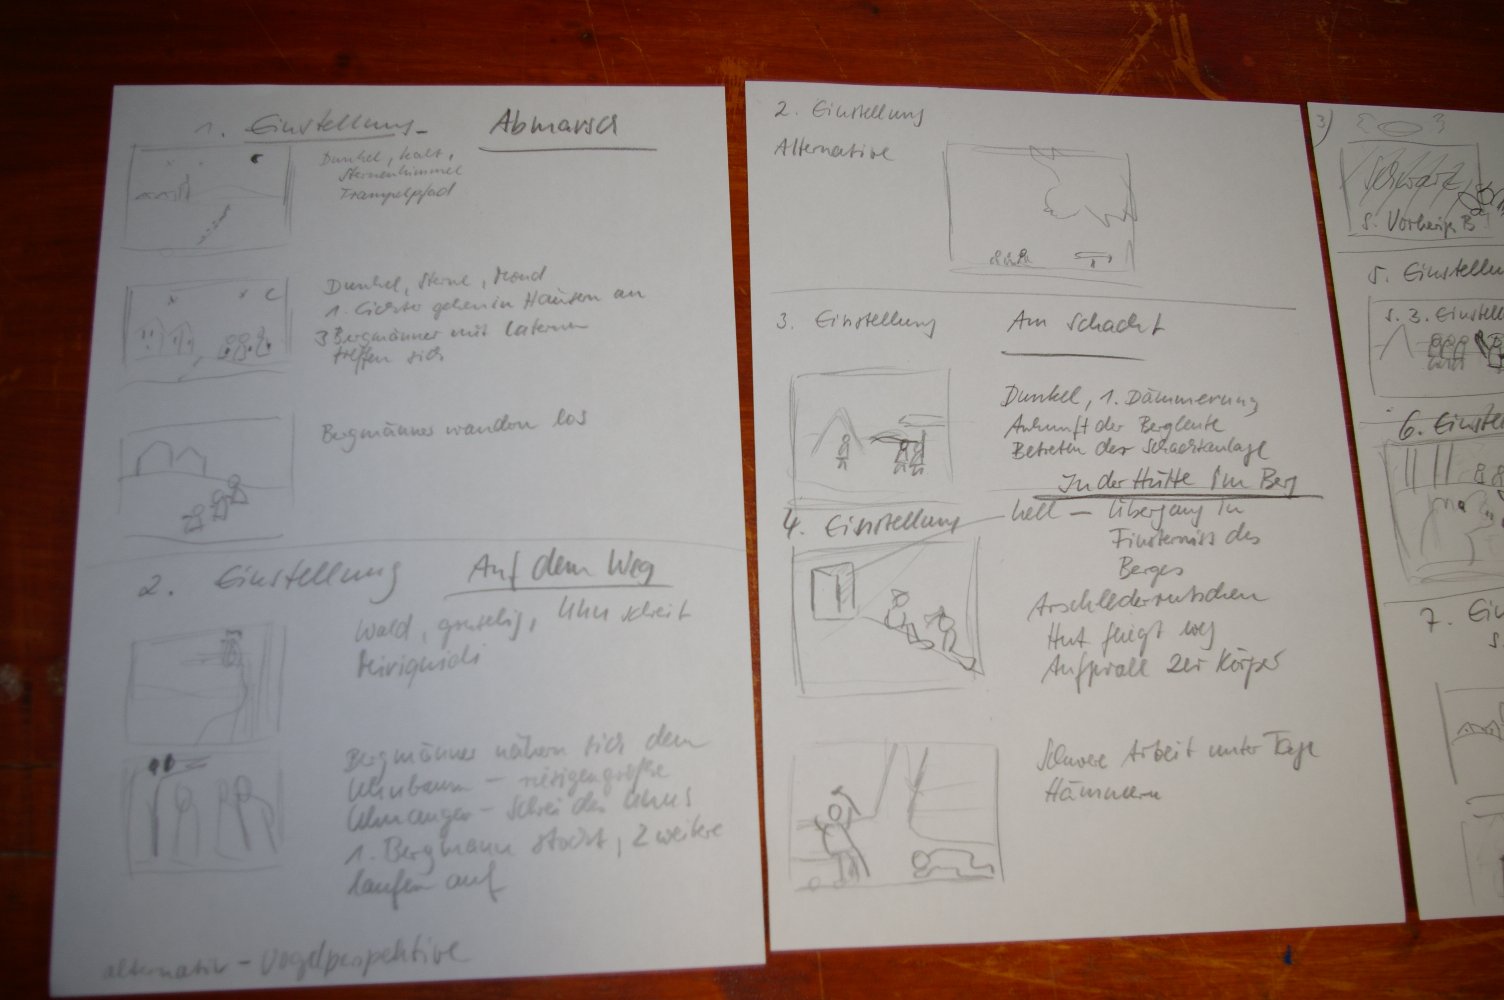 1. Einstellung
Abmarsch
Dunkel, kalt,
Sternenhimmel
Trampelpfad
Dunkel, Sterne, Mond
1. Lichter gehen in Häusern an
3 Bergmänner mit Laternen
treffen sich
Bergmänner wandern los
2. Einstellung
Auf dem Weg
Wald, gruselig, Uhu schreit
Miriquidi
Bergmänner nähern sich dem
Uhubaum – riesigengroße
Uhuaugen – Schrei des Uhus
1. Bergmann stockt, 2 weitere
laufen auf
alternativ – Vogelperspektive
2. Einstellung
Alternative
3. Einstellung
Am Schacht
Dunkel, 1. Dämmerung
Ankunft der Bergleute
Betreten der Schachtanlage
In der Hütte im Berg
4. Einstellung
hell – Übergang in
Finsterniss des
Berges
Arschlederrutschen
Hut fliegt weg
Aufprall 2er Körper
Schwere Arbeit unter Tage
Hämmern
3)
Schwarz
s. Vorheriges B
5. Einstellu
s. 3. Einstell
6. Einstel
7. Ein
s.